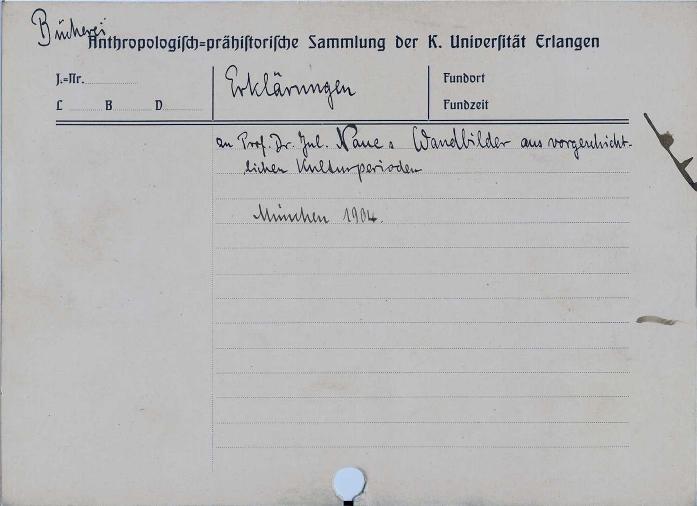 Bücherei
Anthropologisch=prähistorische Sammlung der K. Universität Erlangen
J.=Nr.
Erklärungen
Fundort
L B D
Fundzeit
zu Prof. Dr. Jul. Naue's Wandbilder aus vorgeschicht-
lichen Kulturperioden
München 1904.